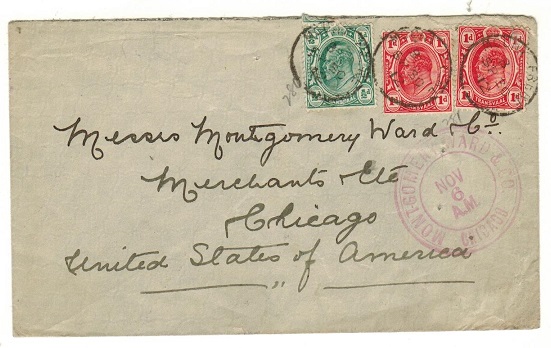 ½d 1d 1d 1d
TRANSVAAL TRANSVAAL
780
Messrs Montgomery Ward & Co.
Merchants Etc
Chicago
United States of America
MONTGOMERY WARD & CO.
NOV
6
A.M.
CHICAGO